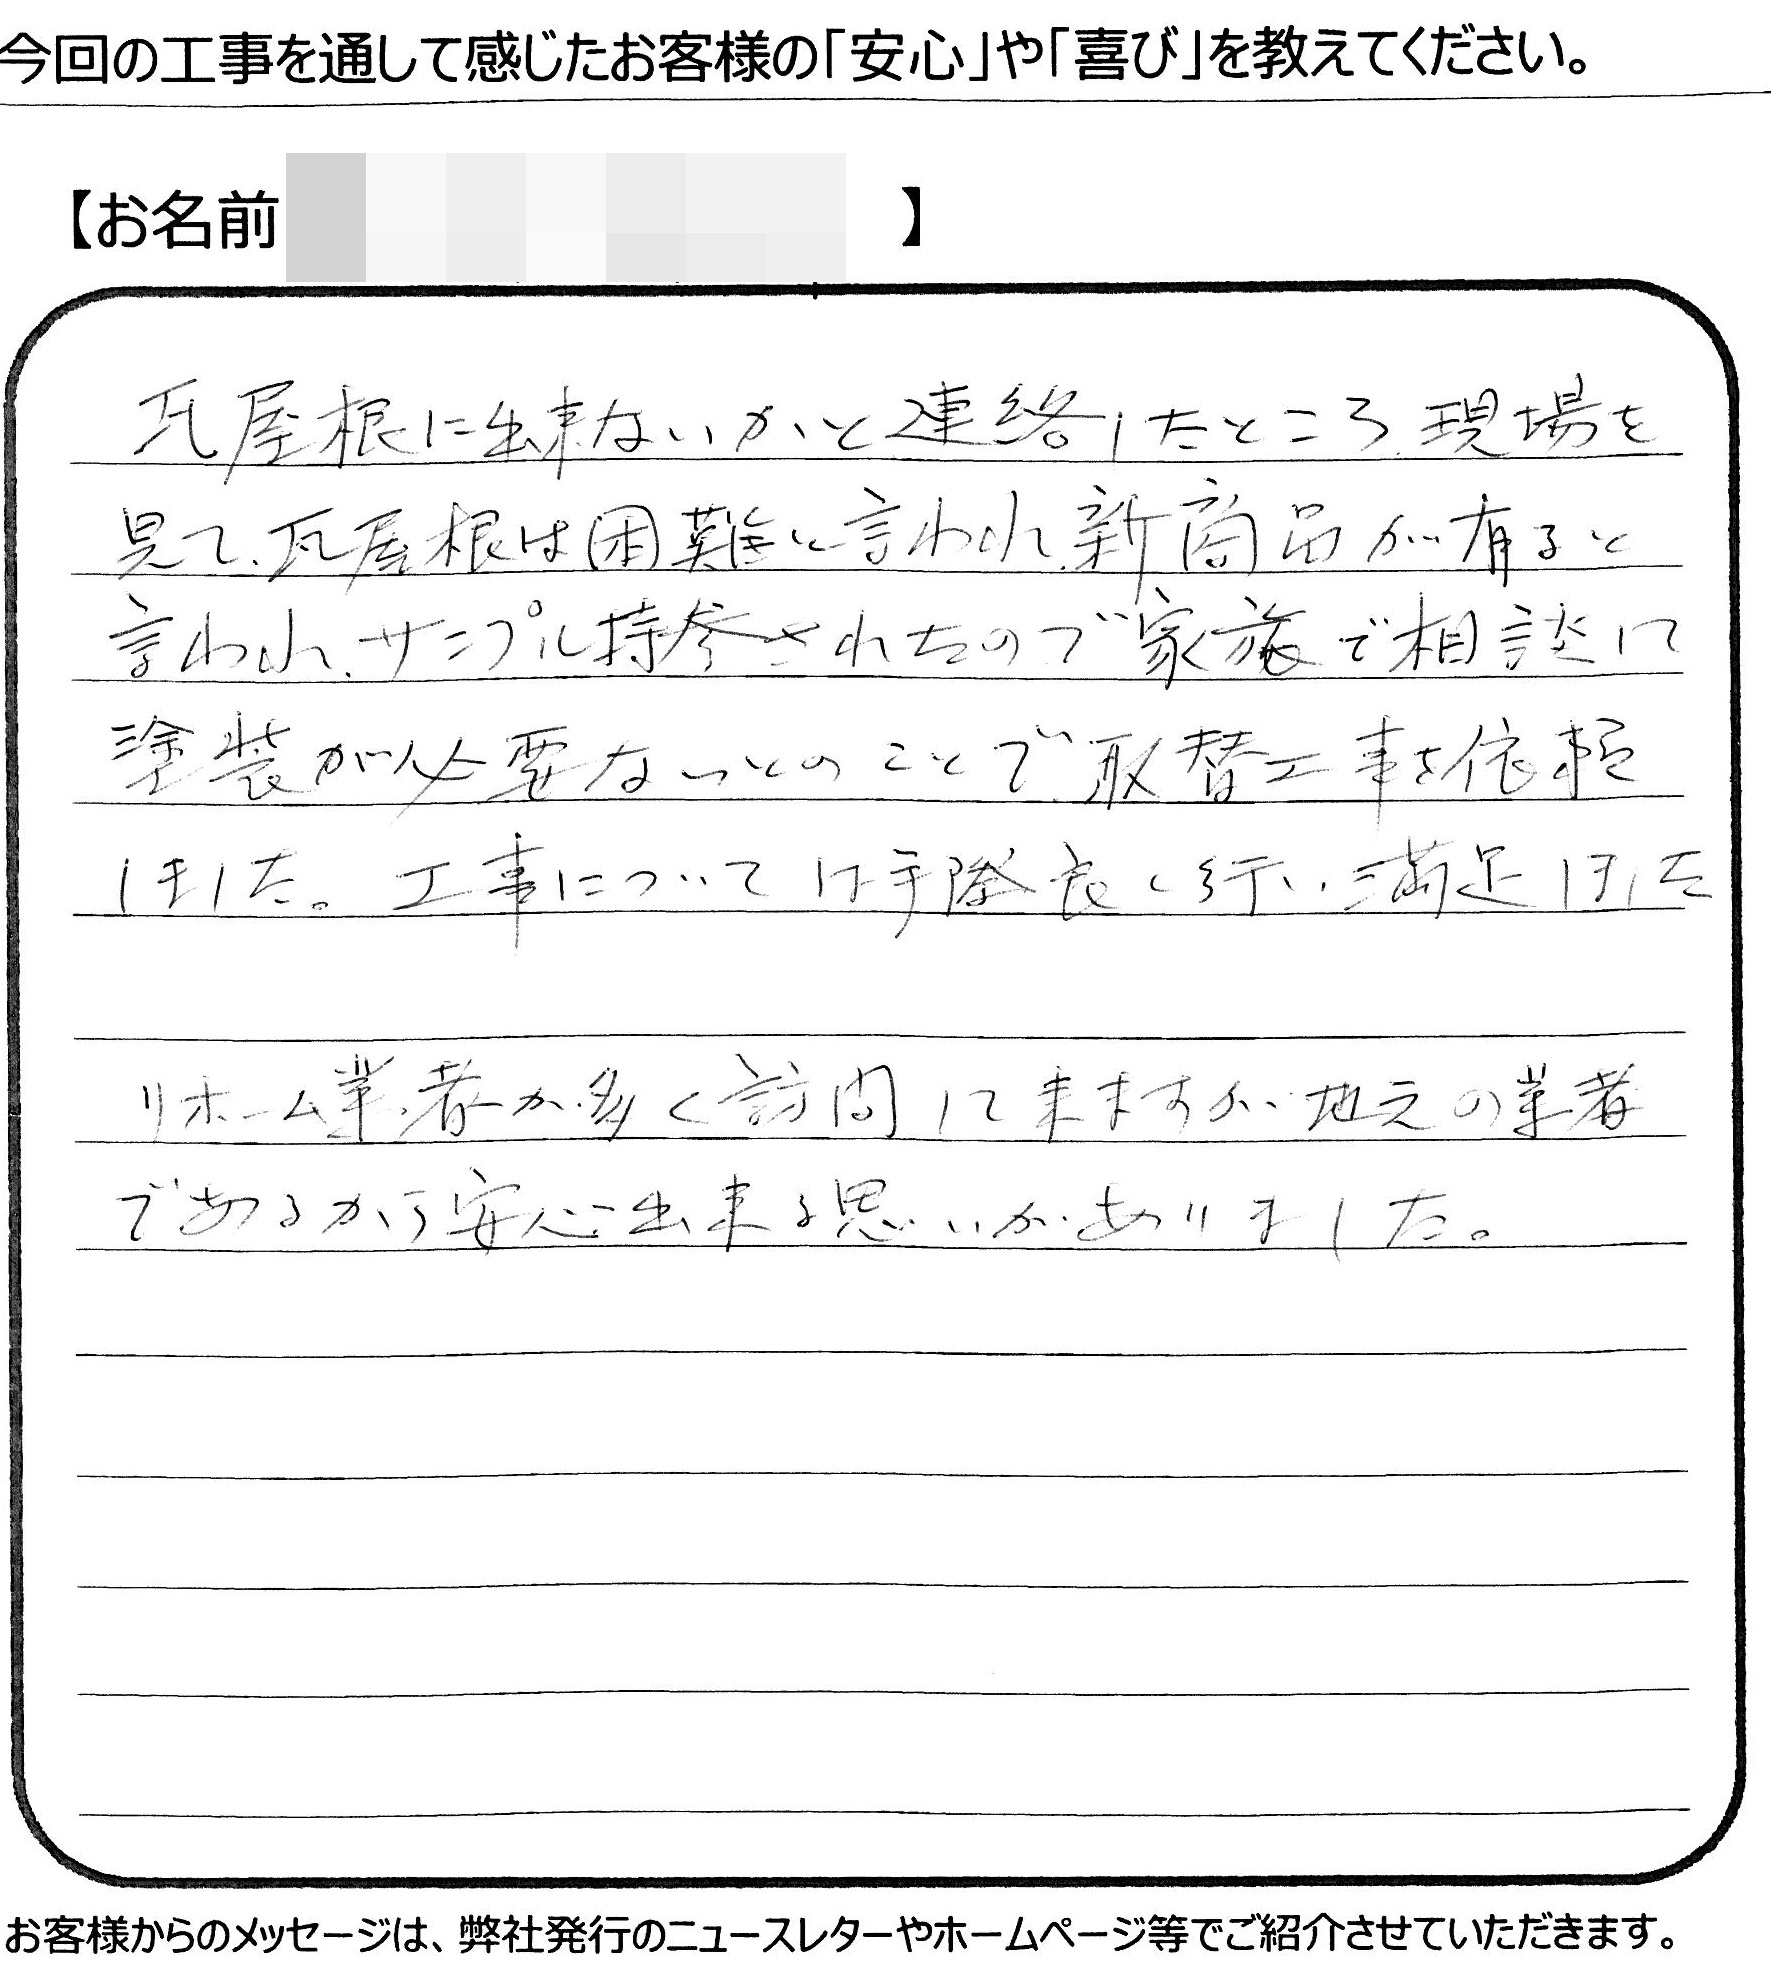 今回の工事を通して感じたお客様の「安心」や「喜び」を教えてください。
【お名前 】
瓦屋根に出来ないかと連絡したところ、現場を
見て、瓦屋根は困難と言われ、新商品が有ると
言われ、サンプル持参されたので家族で相談して
塗装が必要ないとのことで、取替工事を依頼
しました。工事については手際良く行い、満足しました
リホーム業者が多く訪問して来ますが、地元の業者
であるから安心出来る思いがありました。
お客様からのメッセージは、弊社発行のニュースレターやホームページ等でご紹介させていただきます。